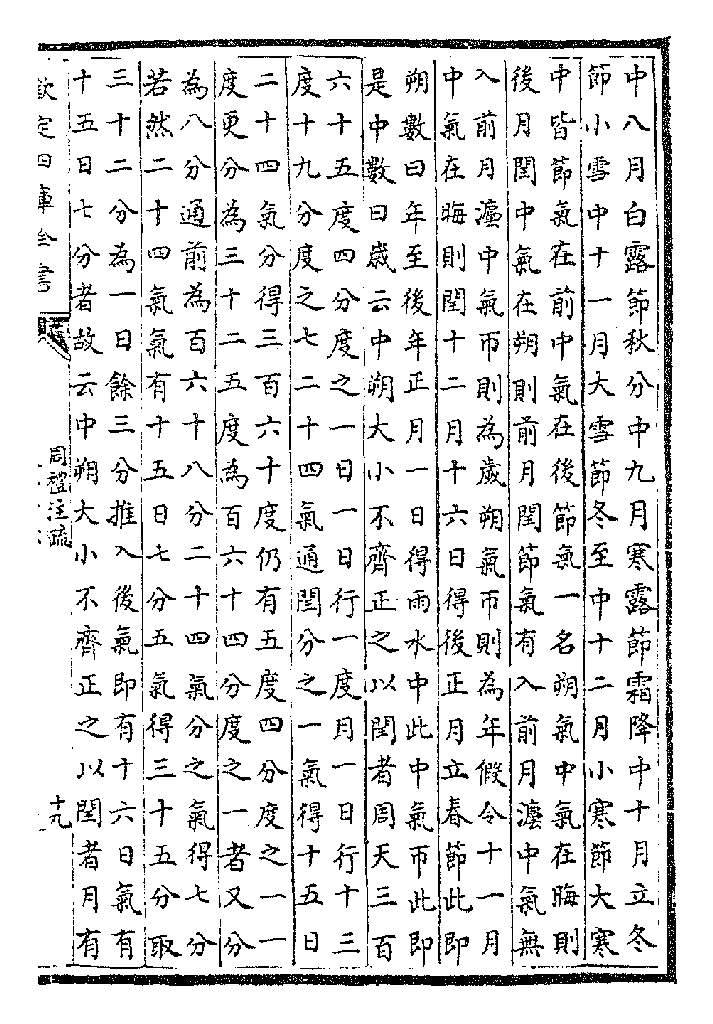 中八月白露節秋分中九月寒露節霜降中十月立冬
節小雪中十一月大雪節冬至中十二月小寒節大寒
中皆節氣在前中氣在後節氣一名朔氣中氣在晦則
後月閏中氣在朔則前月閏節氣有入前月灋中氣無
入前月灋中氣帀則為歲朔氣帀則為年假令十一月
中氣在晦則閏十二月十六日得後正月立春節此即
朔數曰年至後年正月一日得雨水中此中氣帀此即
是中數曰歲云中朔大小不齊正之以閏者周天三百
六十五度四分度之一日一日行一度月一日行十三
度十九分度之七二十四氣通閏分之一氣得十五日
二十四氣分得三百六十度仍有五度四分度之一一
度更分為三十二五度為百六十四分度之一者又分
為八分通前為百六十八分二十四氣分之氣得七分
若然二十四氣氣有十五日七分五氣得三十五分取
三十二分為一日餘三分推入後氣即有十六日氣有
十五日七分者故云中朔大小不齊正之以閏者月有
欽定四庫全書
周禮注疏
十九